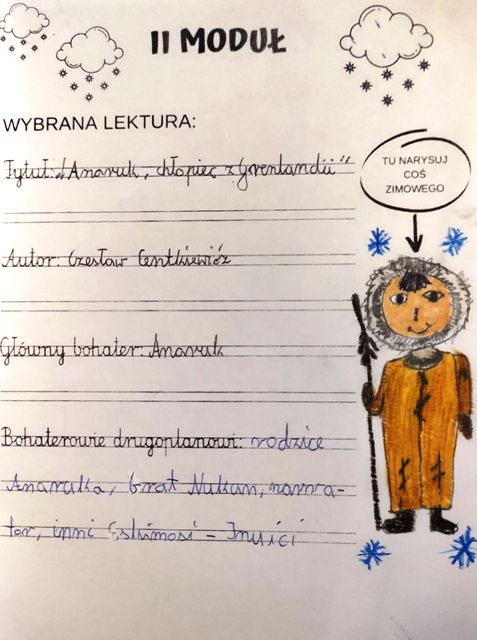 II MODUŁ
WYBRANA LEKTURA:
TU NARYSUJ
COŚ
ZIMOWEGO
Tytuł: „Anaruk, chłopiec z Grenlandii”
Autor: Czesław Centkiewicz
Główny bohater: Anaruk
Bohaterowie drugoplanowi: rodzice
Anaruka, brat Nukun, narra-
tor, inni Eskimosi – Inuici